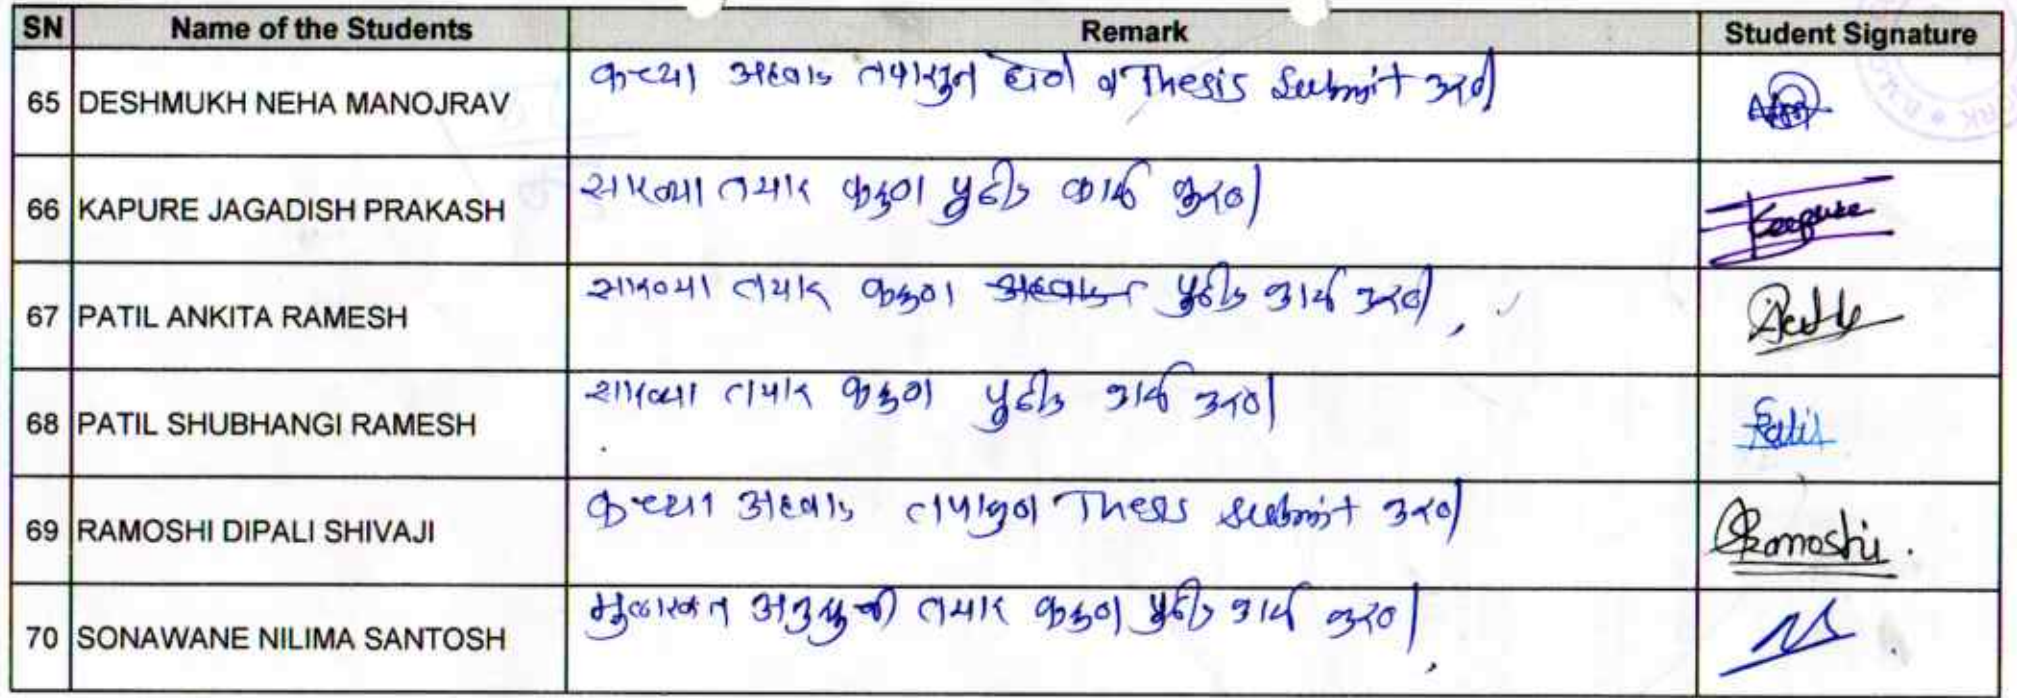 SN Name of the Students Remark Student Signature
65 DESHMUKH NEHA MANOJRAV कच्चा अहवाल तपासून घेणे व Thesis Submit करणे
66 KAPURE JAGADISH PRAKASH सारण्या तयार करून पुढील कार्य करणे Kapure
67 PATIL ANKITA RAMESH सारण्या तयार करून अहवाल पुढील कार्य करणे
68 PATIL SHUBHANGI RAMESH सारण्या तयार करून पुढील कार्य करणे Patil
69 RAMOSHI DIPALI SHIVAJI कच्चा अहवाल तपासून Thesis Submit करणे Ramoshi
70 SONAWANE NILIMA SANTOSH मुलाखत अनुसूची तयार करून पुढील कार्य करणे